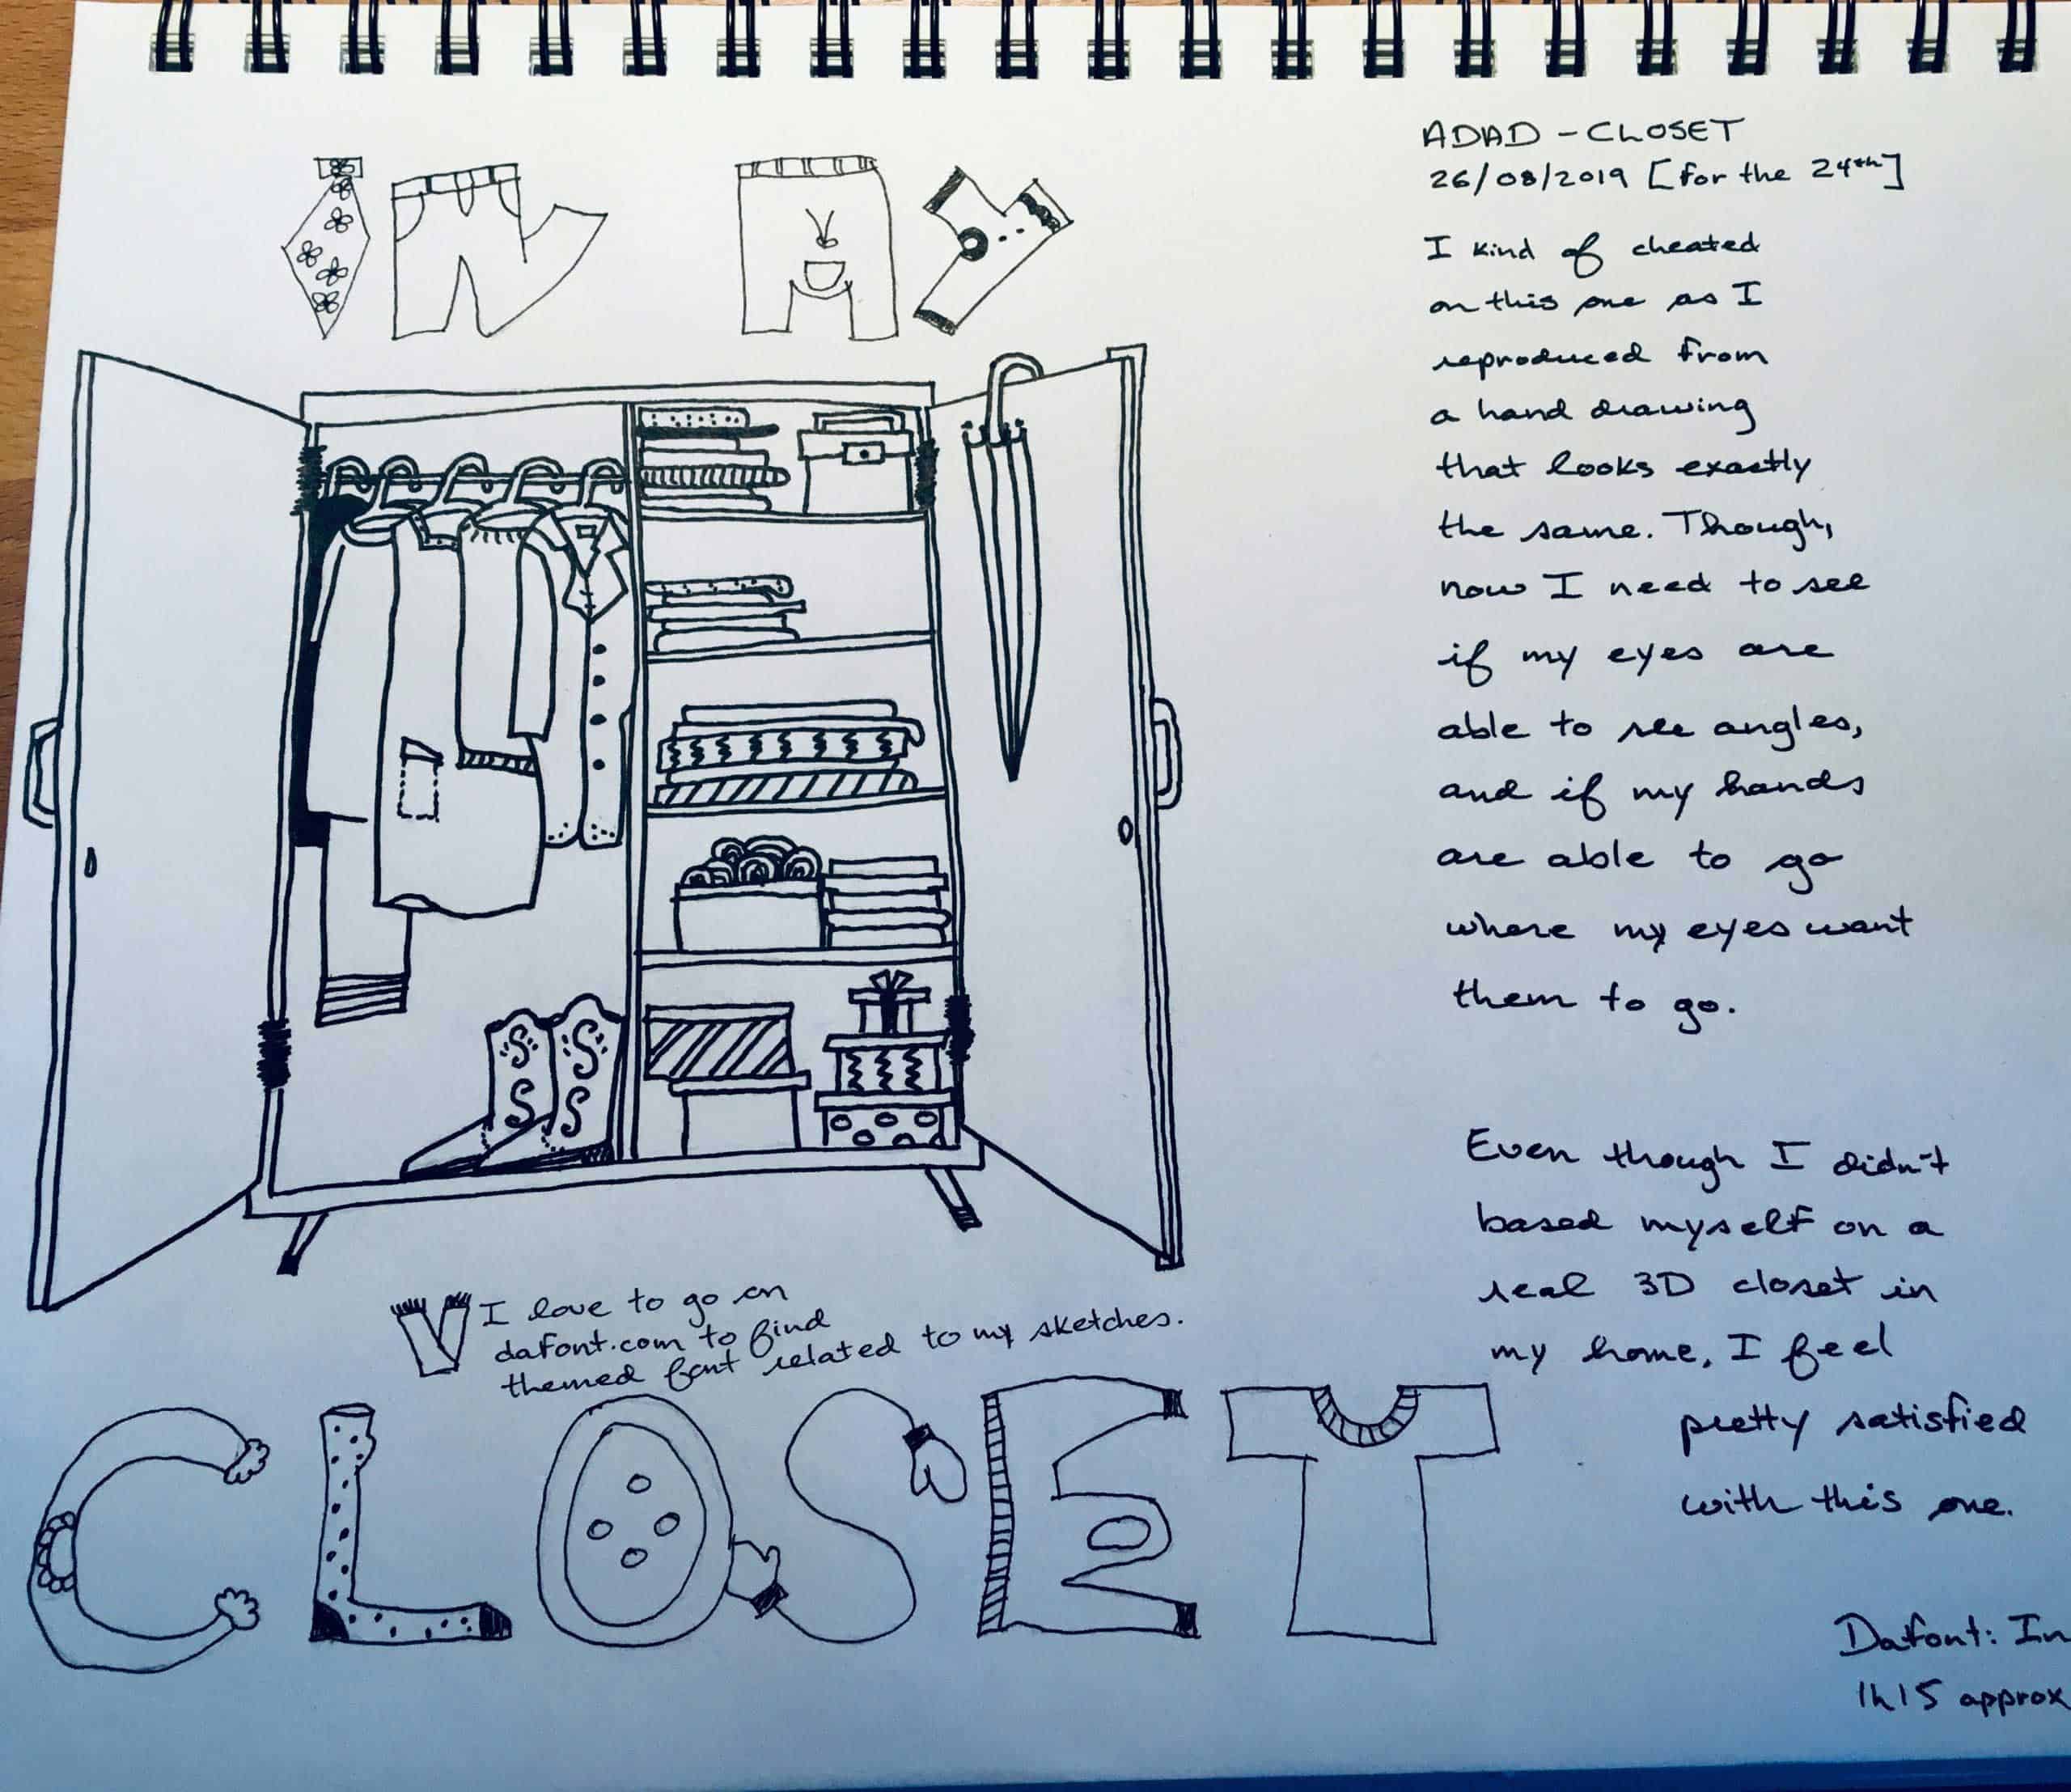 IN MY
ADAD - CLOSET
26/08/2019 [for the 24th]
I kind of cheated
on this one as I
reproduced from
a hand drawing
that looks exactly
the same. Though,
now I need to see
if my eyes are
able to see angles,
and if my hands
are able to go
where my eyes want
them to go.
Even though I didn't
based myself on a
real 3D closet in
my home, I feel
pretty satisfied
with this one.
I love to go on
dafont.com to find
themed font related to my sketches.
CLOSET
Dafont: In
1h15 approx